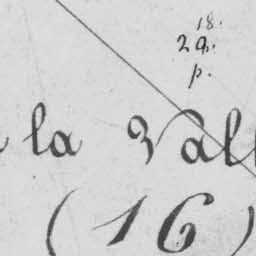 18.
2a.
p.
la Vall
(16)